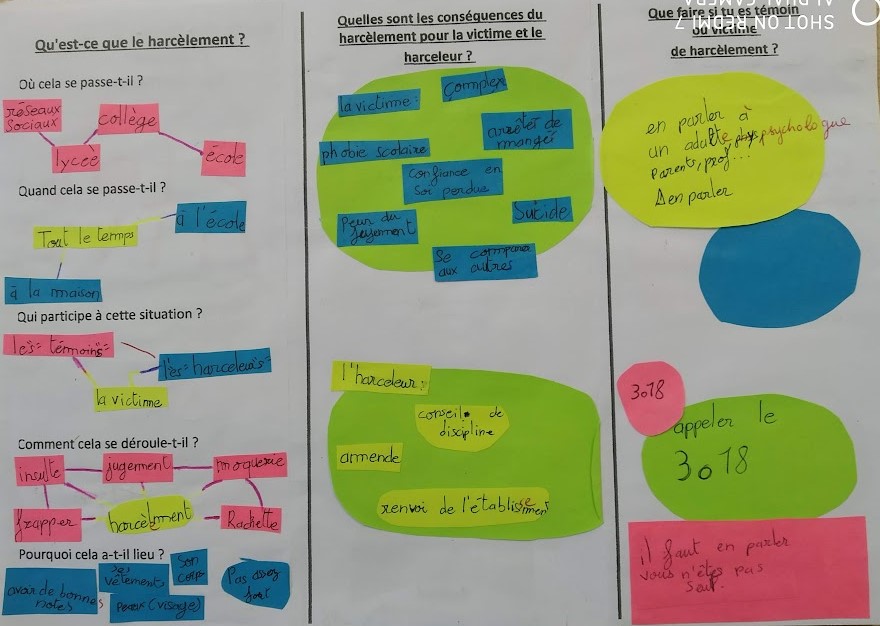 Qu'est-ce que le harcèlement ?
Où cela se passe-t-il ?
réseaux
sociaux
collège
lycée
école
Quand cela se passe-t-il ?
à l'école
Tout le temps
à la maison
Qui participe à cette situation ?
les témoins
les harceleurs
la victime
Comment cela se déroule-t-il ?
insulte
jugement
moquerie
frapper
harcèlement
Rackette
Pourquoi cela a-t-il lieu ?
avoir de bonnes
notes
ses
vêtements
son
corps
Peaux (visage)
Pas assez
fort
Quelles sont les conséquences du
harcèlement pour la victime et le
harceleur ?
la victime :
complex
arrêter de
manger
phobie scolaire
confiance en
soi perdus
Peur du
jugement
Suicide
Se comparer
aux autres
l'harceleur :
conseil de
discipline
amende
renvoi de l'établissement
Que faire si tu es témoin
ou victime
de harcèlement ?
SHOT ON REDMI 7
AI DUAL CAMERA
en parler à
un adulte psychologue
Parents, prof...
en parler
3018
appeler le
3018
il faut en parler
vous n'êtes pas
seul.